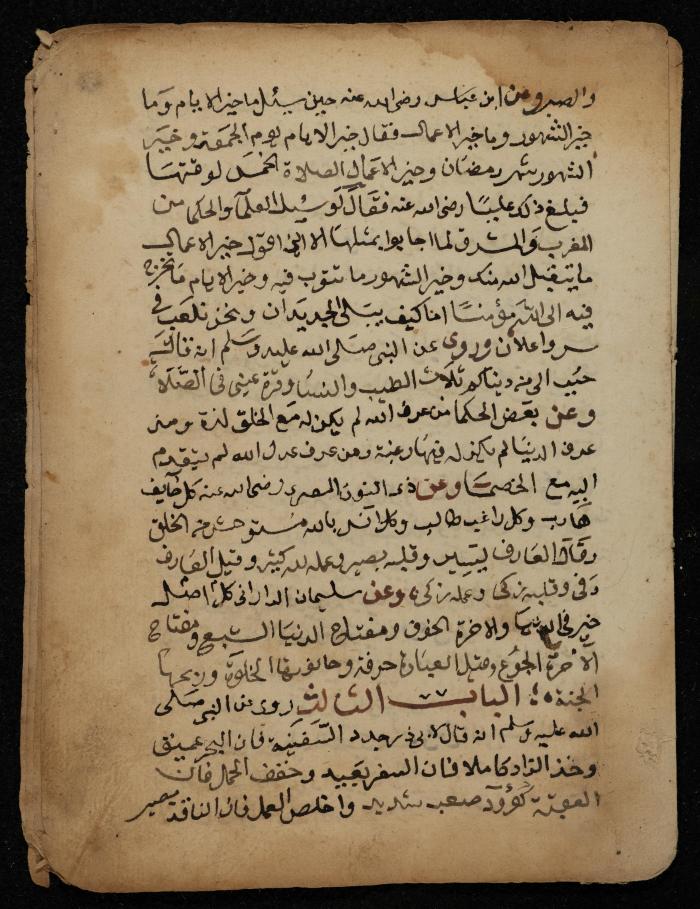 والصبر وعن ابن عباس رضى الله عنه حين سئل ما خير الايام وما
خير الشهور وما خير الاعمال فقال خير الايام يوم الجمعة وخير
الشهور شهر رمضان وخير الاعمال الصلاة الخمس لوقتها
فبلغ ذلك عليا رضى الله عنه فقال لو سئل العلما والحكما من
المغرب والمشرق لما اجابوا بمثلها الا انى اقول خير الاعمال
ما يتقبل الله منك وخير الشهور ما تتوب فيه وخير الايام ما تخرج
فيه الى الله مؤمنا اما كيف يبلى الجديدان ونحن نلعب فى
سر واعلان وروى عن النبى صلى الله عليه وسلم انه قال
حبب الى من دنياكم ثلاث الطيب والنسا وقرة عينى فى الصلاة
وعن بعض الحكما من عرف الله لم يكن له مع الخلق لذة ومن
عرف الدنيا لم يكن له فيها رغبة ومن عرف عدل الله لم يتقدم
اليه مع الخصما وعن ذى النون المصرى رضى الله عنه كل خايف
هارب وكل راغب طالب وكل انس بالله مستوحش من الخلق
وقال العارف وقلبه بصير وعمله لله كثير وقيل العارف
وفى وقلبه زكى وعمله زكى وعن سليمان الدارانى كل اصل
خير فى الدنيا والاخرة الخوف ومفتاح الدنيا الشبع ومفتاح
الآخرة الجوع وقيل العبادة حرفة وحانوتها الخلوة وربحها
الجنة الباب الثالث روى عن النبى صلى
الله عليه وسلم انه قال لابى ذر جدد السفينة فان البحر عميق
وخذ الزاد كاملا فان السفر بعيد وخفف الحمل فان
العقبة كؤود صعب شديد واخلص العمل فان الناقد بصير